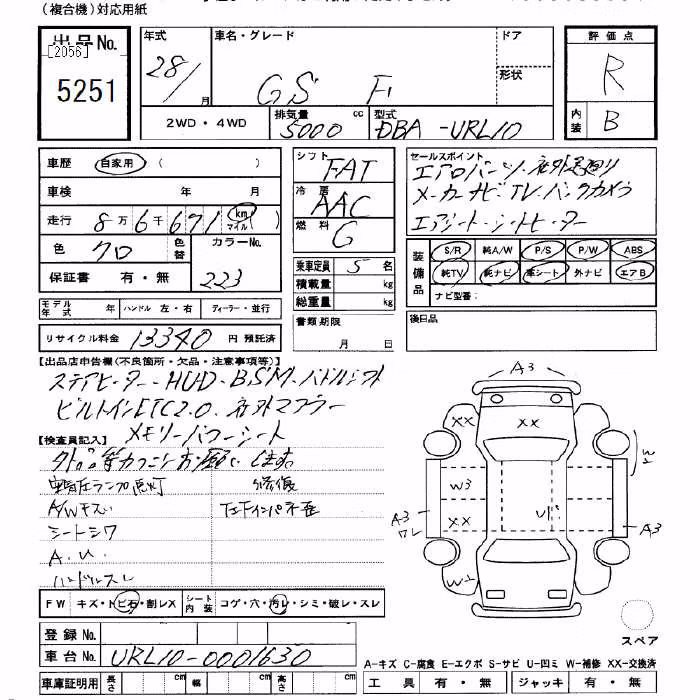 (複合機)対応用紙
出品No.
[2056]
5251
年式
28/
月
車名・グレード
GS F
ドア
形状
評価点
R
内装
B
2WD・4WD
排気量
5000
cc
型式
DBA-URL10
車歴
自家用
(
)
車検
年
月
走行
8万6千671
(km
マイル)
色
クロ
色替
カラーNo.
223
保証書
有・無
シフト
FAT
冷房
AAC
燃料
G
乗車定員
5
名
積載量
kg
総重量
kg
セールスポイント
エアロパーツ・社外足廻り
メーカーナビ・TV・バックカメラ
エアシート・シートヒーター
装備品
S/R
純A/W
P/S
P/W
ABS
純TV
純ナビ
革シート
外ナビ
エアB
ナビ型番:
モデル年式
年
ハンドル 左・右
ディーラー・並行
書類期限
月
日
後日品
リサイクル料金
13340
円 預託済
【出品店申告欄(不良箇所・欠品・注意事項等)】
ステアヒーター・HUD・BSM・パドルシフト
ビルトインETC2.0. 社外マフラー
メモリーパワーシート
【検査員記入】
空気圧ランプ点灯
修復
A/Wキズ
シートシワ
A.U.
ハンドルスレ
FW
キズ・トビ石・割レX
シート内装
コゲ・穴・汚レ・シミ・破レ・スレ
登録No.
車台No.
URL10-0001630
車庫証明用
長さ
cm
幅
cm
高さ
cm
A3
XX
XX
W2
W3
XX
A3
ワレ
A3
W2
スペア
A-キズ C-腐食 E-エクボ S-サビ U-凹ミ W-補修 XX-交換済
工具
有・無
ジャッキ
有・無